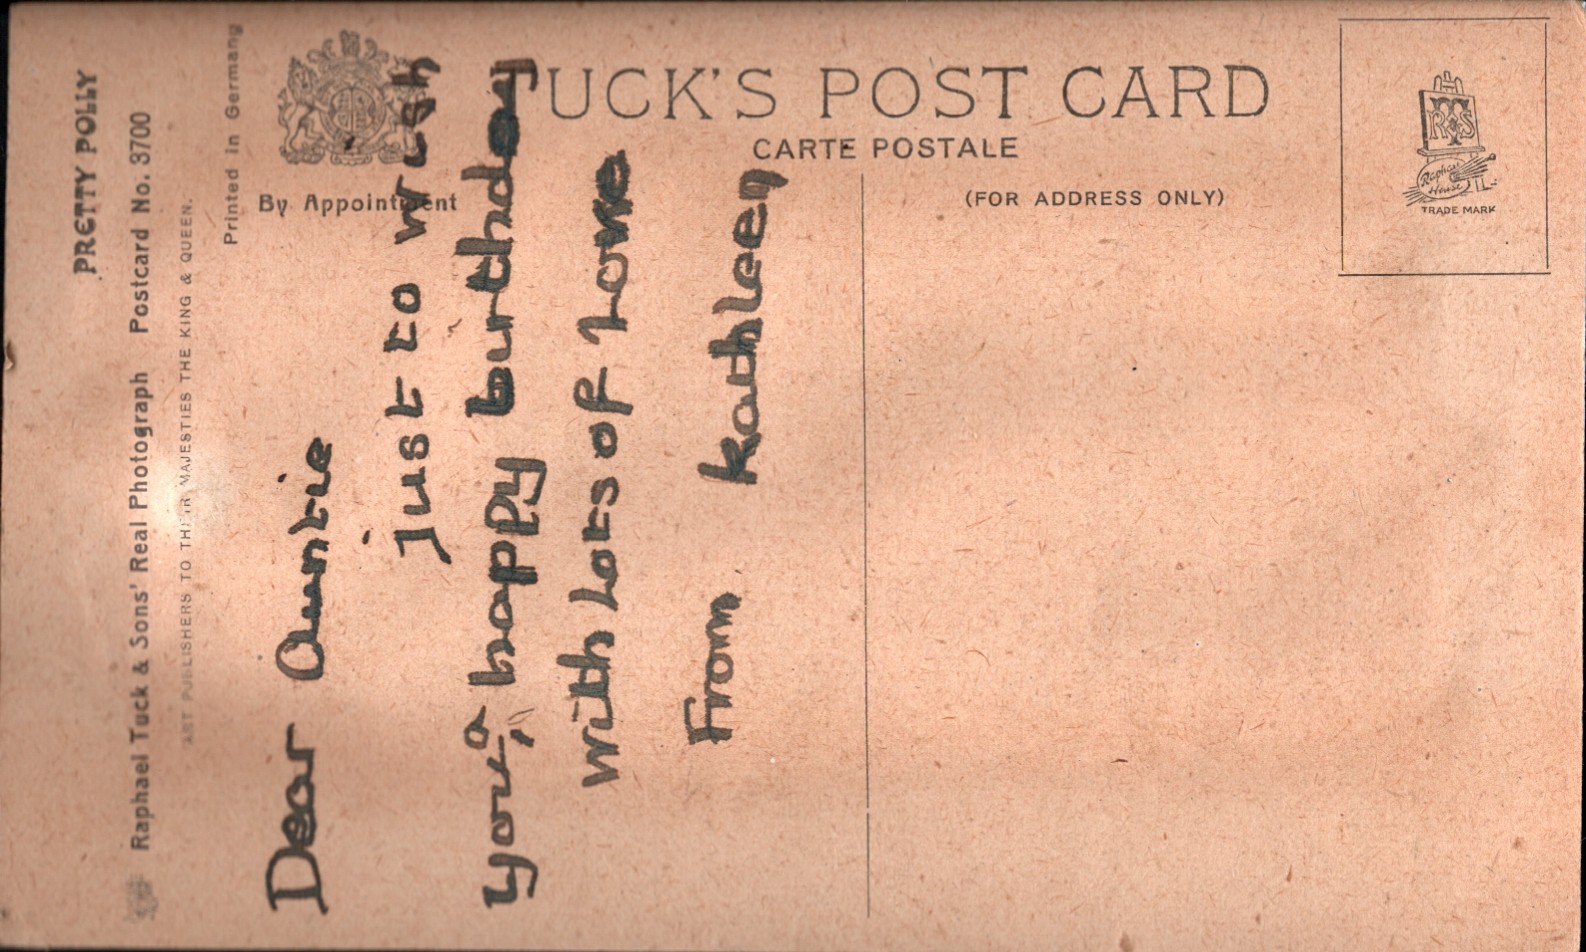 PRETTY POLLY
Raphael Tuck & Sons' Real Photograph Postcard No. 3700
ART PUBLISHERS TO THEIR MAJESTIES THE KING & QUEEN.
Printed in Germany
By Appointment
TUCK'S POST CARD
CARTE POSTALE
(FOR ADDRESS ONLY)
RTS
Raphael
House
TRADE MARK
Dear Auntie
Just to wish
you a happy burthday
with lots of Love
From Kathleen